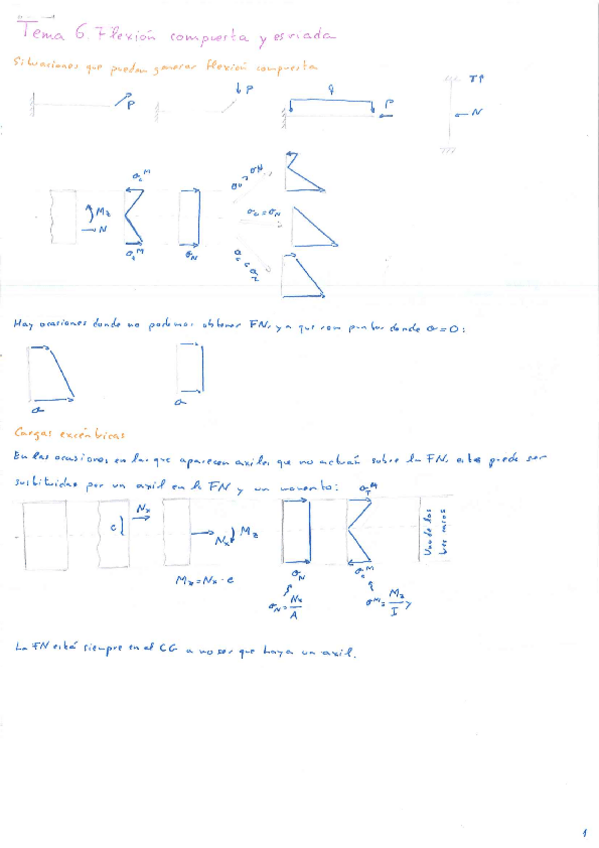 Tema 6. Flexión compuesta y esviada
Situaciones que puedan generar flexión compuesta
P
P
q
P
T↑
N
σ₂ᴹ
Mz
N
σ₁ᴹ
σN
σM = σN
Hay ocasiones donde no podemos obtener FN, ya que son puntos donde σ=0:
σ
σ
Cargas excéntricas
En las ocasiones en las que aparecen axiles que no actúan sobre la FN, estas puede ser
sustituidas por un axil en la FN y un momento:
e
Nx
Nx
Mz
Mz = Nx · e
σN
σN = Nx / A
σᴹ = Mz / I y
La FN está siempre en el CG a no ser que haya un axil.
1